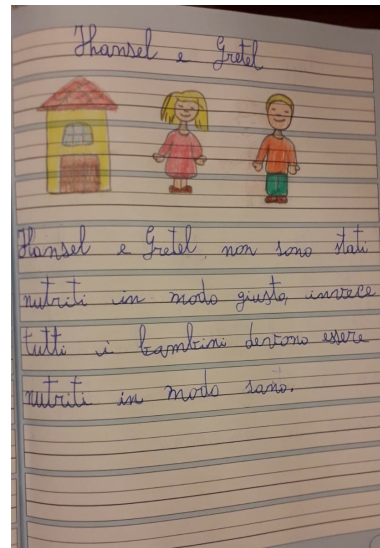 Hansel e Gretel
Hansel e Gretel non sono stati
nutriti in modo giusto, invece
tutti i bambini devono essere
nutriti in modo sano.